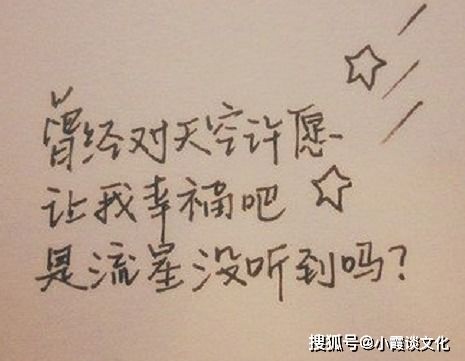 曾经对天空许愿
让我幸福吧
是流星没听到吗?
搜狐号@小霞谈文化